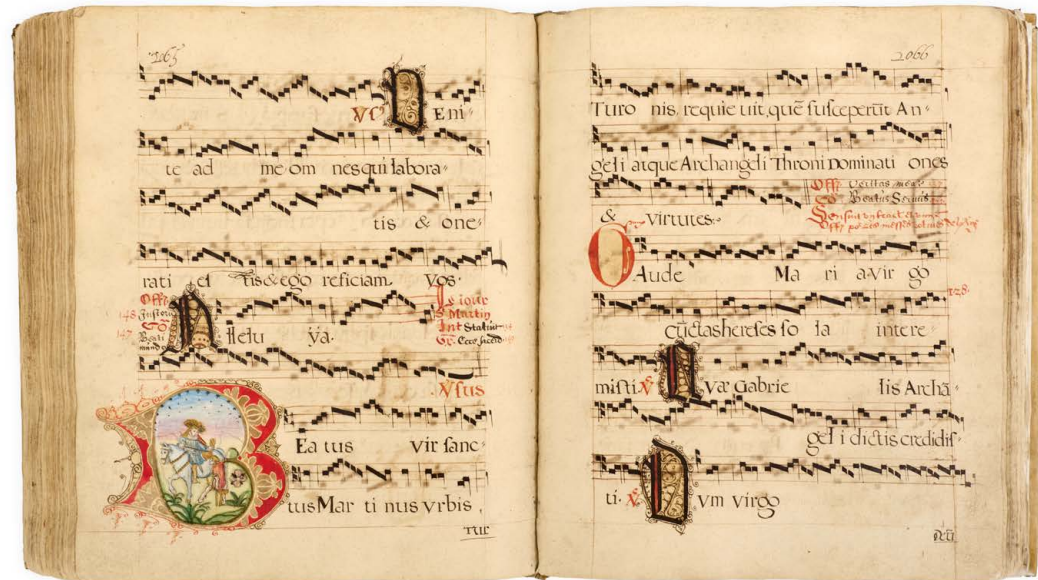 265
V̄ ENI-
te ad me om nes qui labora-
tis & one-
rati es tis & ego reficiam. Vos.
Offe
148
147 Beati
A lleluȳa.
Le iour
S. Martin
Int Statuit
Gr. Ecce sacerd
V̄sus
BEa tus vir sanc-
tus Mar ti nus vrbis,
Tur
2066
Turo nis, requie uit, quē susceperūt An-
geli atque Archangeli Throni Dominati ones
Offe Veritas mea
Co Beatus Seruus
& virtutes.
GAude Ma ri a vir go
128.
cūctas hereses so la intere-
misti. V̄ Quæ Gabrie lis Archā-
gel i dictis credidis-
ti. V̄ DVm virgo
Deū